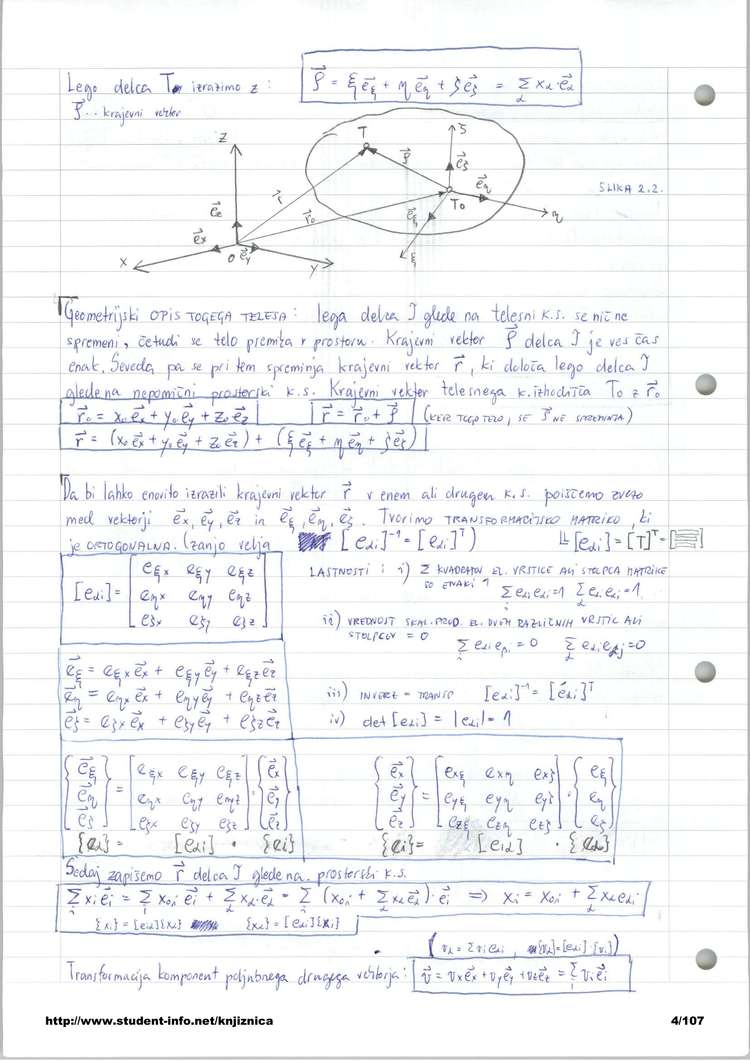 Lego delca T izrazimo z : ρ⃗ = ξe⃗ξ + ηe⃗η + ζe⃗ζ = Σα xα·e⃗α
ρ⃗ .. krajevni vektor
Z T ζ
ρ⃗ e⃗ζ
r⃗ e⃗η SLIKA 2.2.
e⃗z r⃗o T₀ η
e⃗x e⃗ξ
X O e⃗y Y ξ
Geometrijski OPIS TOGEGA TELESA : lega delca T glede na telesni k.s. se nič ne
spremeni, četudi se telo premika v prostoru. Krajevni vektor ρ⃗ delca T je ves čas
enak. Seveda pa se pri tem spreminja krajevni vektor r⃗, ki določa lego delca T
glede na nepomični prostorski k.s. Krajevni vektor telesnega k. izhodišča T₀ z r⃗₀
r⃗₀ = x₀e⃗x + y₀e⃗y + z₀e⃗z r⃗ = r⃗₀ + ρ⃗ (KER TOGO TELO, SE ρ⃗ NE SPREMINJA)
r⃗ = (x₀e⃗x + y₀e⃗y + z₀e⃗z) + (ξe⃗ξ + ηe⃗η + ζe⃗ζ)
Da bi lahko enovito izrazili krajevni vektor r⃗ v enem ali drugem k.s. poiščemo zvezo
med vektorji e⃗x, e⃗y, e⃗z in e⃗ξ, e⃗η, e⃗ζ. Tvorimo TRANSFORMACIJSKO MATRIKO, ki
je ORTOGONALNA. (zanjo velja [eαi]⁻¹ = [eαi]ᵀ) [eαi] = [T]ᵀ =
[eαi] = [ eξx eξy eξz LASTNOSTI : i) Σ KVADRATOV EL. VRSTICE ALI STOLPCA MATRIKE
SO ENAKI 1 Σi eαi eαi = 1 Σα eαi eαi = 1
eηx eηy eηz
eζx eζy eζz ] ii) VREDNOST SKAL. PROD. EL. DVEH RAZLIČNIH VRSTIC ALI
STOLPCEV = 0 Σi eαi eβi = 0 Σα eαi eαj = 0
e⃗ξ = eξx e⃗x + eξy e⃗y + eξz e⃗z
e⃗η = eηx e⃗x + eηy e⃗y + eηz e⃗z iii) INVERZ = TRANSP [eαi]⁻¹ = [eαi]ᵀ
e⃗ζ = eζx e⃗x + eζy e⃗y + eζz e⃗z iv) det [eαi] = |eαi| = 1
{ e⃗ξ } [ eξx eξy eξz ] { e⃗x } { e⃗x } [ exξ exη exζ ] { eξ }
{ e⃗η } = [ eηx eηy eηz ] · { e⃗y } { e⃗y } = [ eyξ eyη eyζ ] · { eη }
{ e⃗ζ } [ eζx eζy eζz ] { e⃗z } { e⃗z } [ ezξ ezη ezζ ] { eζ }
{eα} = [eαi] · {ei} {ei} = [eiα] · {eα}
Sedaj zapišemo r⃗ delca T glede na prostorski k.s.
Σi xi e⃗i = Σi x₀i e⃗i + Σα xα·e⃗α = Σi (x₀i + Σα xα eαi)·e⃗i ⇒ xi = x₀i + Σα xα eαi
{xi} = [eiα]{xα} {xα} = [eαi]{xi}
(vα = Σ vi eαi , {vα} = [eαi]·{vi})
Transformacija komponent poljubnega drugega vektorja : v⃗ = vx e⃗x + vy e⃗y + vz e⃗z = Σi vi e⃗i
http://www.student-info.net/knjiznica 4/107